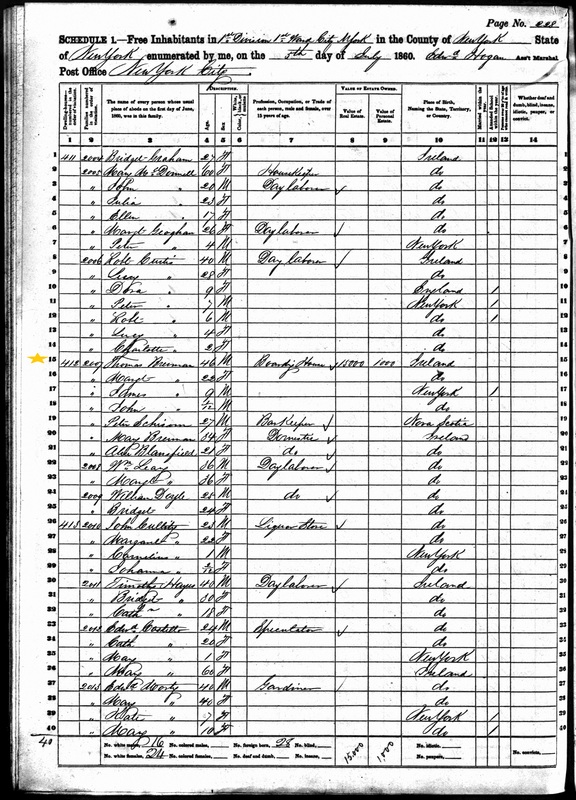 Page No. 228
SCHEDULE 1.—Free Inhabitants in 1st Division 1st Ward City N York in the County of New York State
of New York enumerated by me, on the 5th day of July 1860. Edwd Hogan Ass't Marshal
Post Office New York City
DESCRIPTION. VALUE OF ESTATE OWNED.
The name of every person whose usual place of abode on the first day of June, 1860, was in this family.
Age. Sex.
Profession, Occupation, or Trade of each person, male and female, over 15 years of age.
Value of Real Estate. Value of Personal Estate.
Place of Birth, Naming the State, Territory, or Country.
Married within the year.
Whether deaf and dumb, blind, insane, idiotic, pauper, or convict.
1 2 3 4 5 6 7 8 9 10 11 12 13 14
1 411 2004 Bridget Graham 27 F Ireland
2 2005 Mary McDonnell 60 F Housekeeper do
3 " John " 20 M Daylaborer do
4 " Julia " 23 F do
5 " Ellen " 17 F do
6 " Margt Geoghan 26 F Daylaborer do
7 " Peter " 4 M New York
8 2006 Robt Curtis 40 M Day labor Ireland
9 " Lucy " 28 F do
10 " Dora " 9 F England 1
11 " Peter " 7 M New York 1
12 " Robt " 6 M do 1
13 " Lucy " 4 F do
14 " Charlotte " 2 F do
15 412 2007 Thomas Brennan 46 M Boarding House 15000 1000 Ireland
16 " Margt " 22 F do
17 " James " 9 M New York 1
18 " John " /12 M do
19 " Peter 27 M Bar Keeper Nova Scotia
20 " Mary Brennan 34 F Domestic Ireland
21 " Mansfield 21 F do do
22 2008 Wm Leary 36 M Daylaborer do
23 " Margt " 36 F do
24 2009 William Doyle 26 M do do
25 " Bridget " 24 F do
26 413 2010 John 25 M Liquor Store do
27 " Margaret " 22 F do
28 " Cornelius " 1 M New York
29 " Johanna " /12 F do
30 2011 Timothy Hayes 40 M Daylaborer Ireland
31 " Bridget " 30 F do
32 " Cath " 18 F do
33 2012 Edwd Costello 24 M Speculator do
34 " Cath " 20 F do
35 " Mary " 1 F New York
36 " Mary " 60 F Ireland
37 2013 Edwd 40 M Gardiner do
38 " Mary " 40 F do
39 " Kate " 7 F New York 1
40 " Mary " 10 F do 1
40 No. white males, 16 No. colored males, No. foreign born, 28 No. blind, 15,000 1,000 No. idiotic, No. convicts,
No. white females, 24 No. colored females, No. deaf and dumb, No. insane, No. paupers,